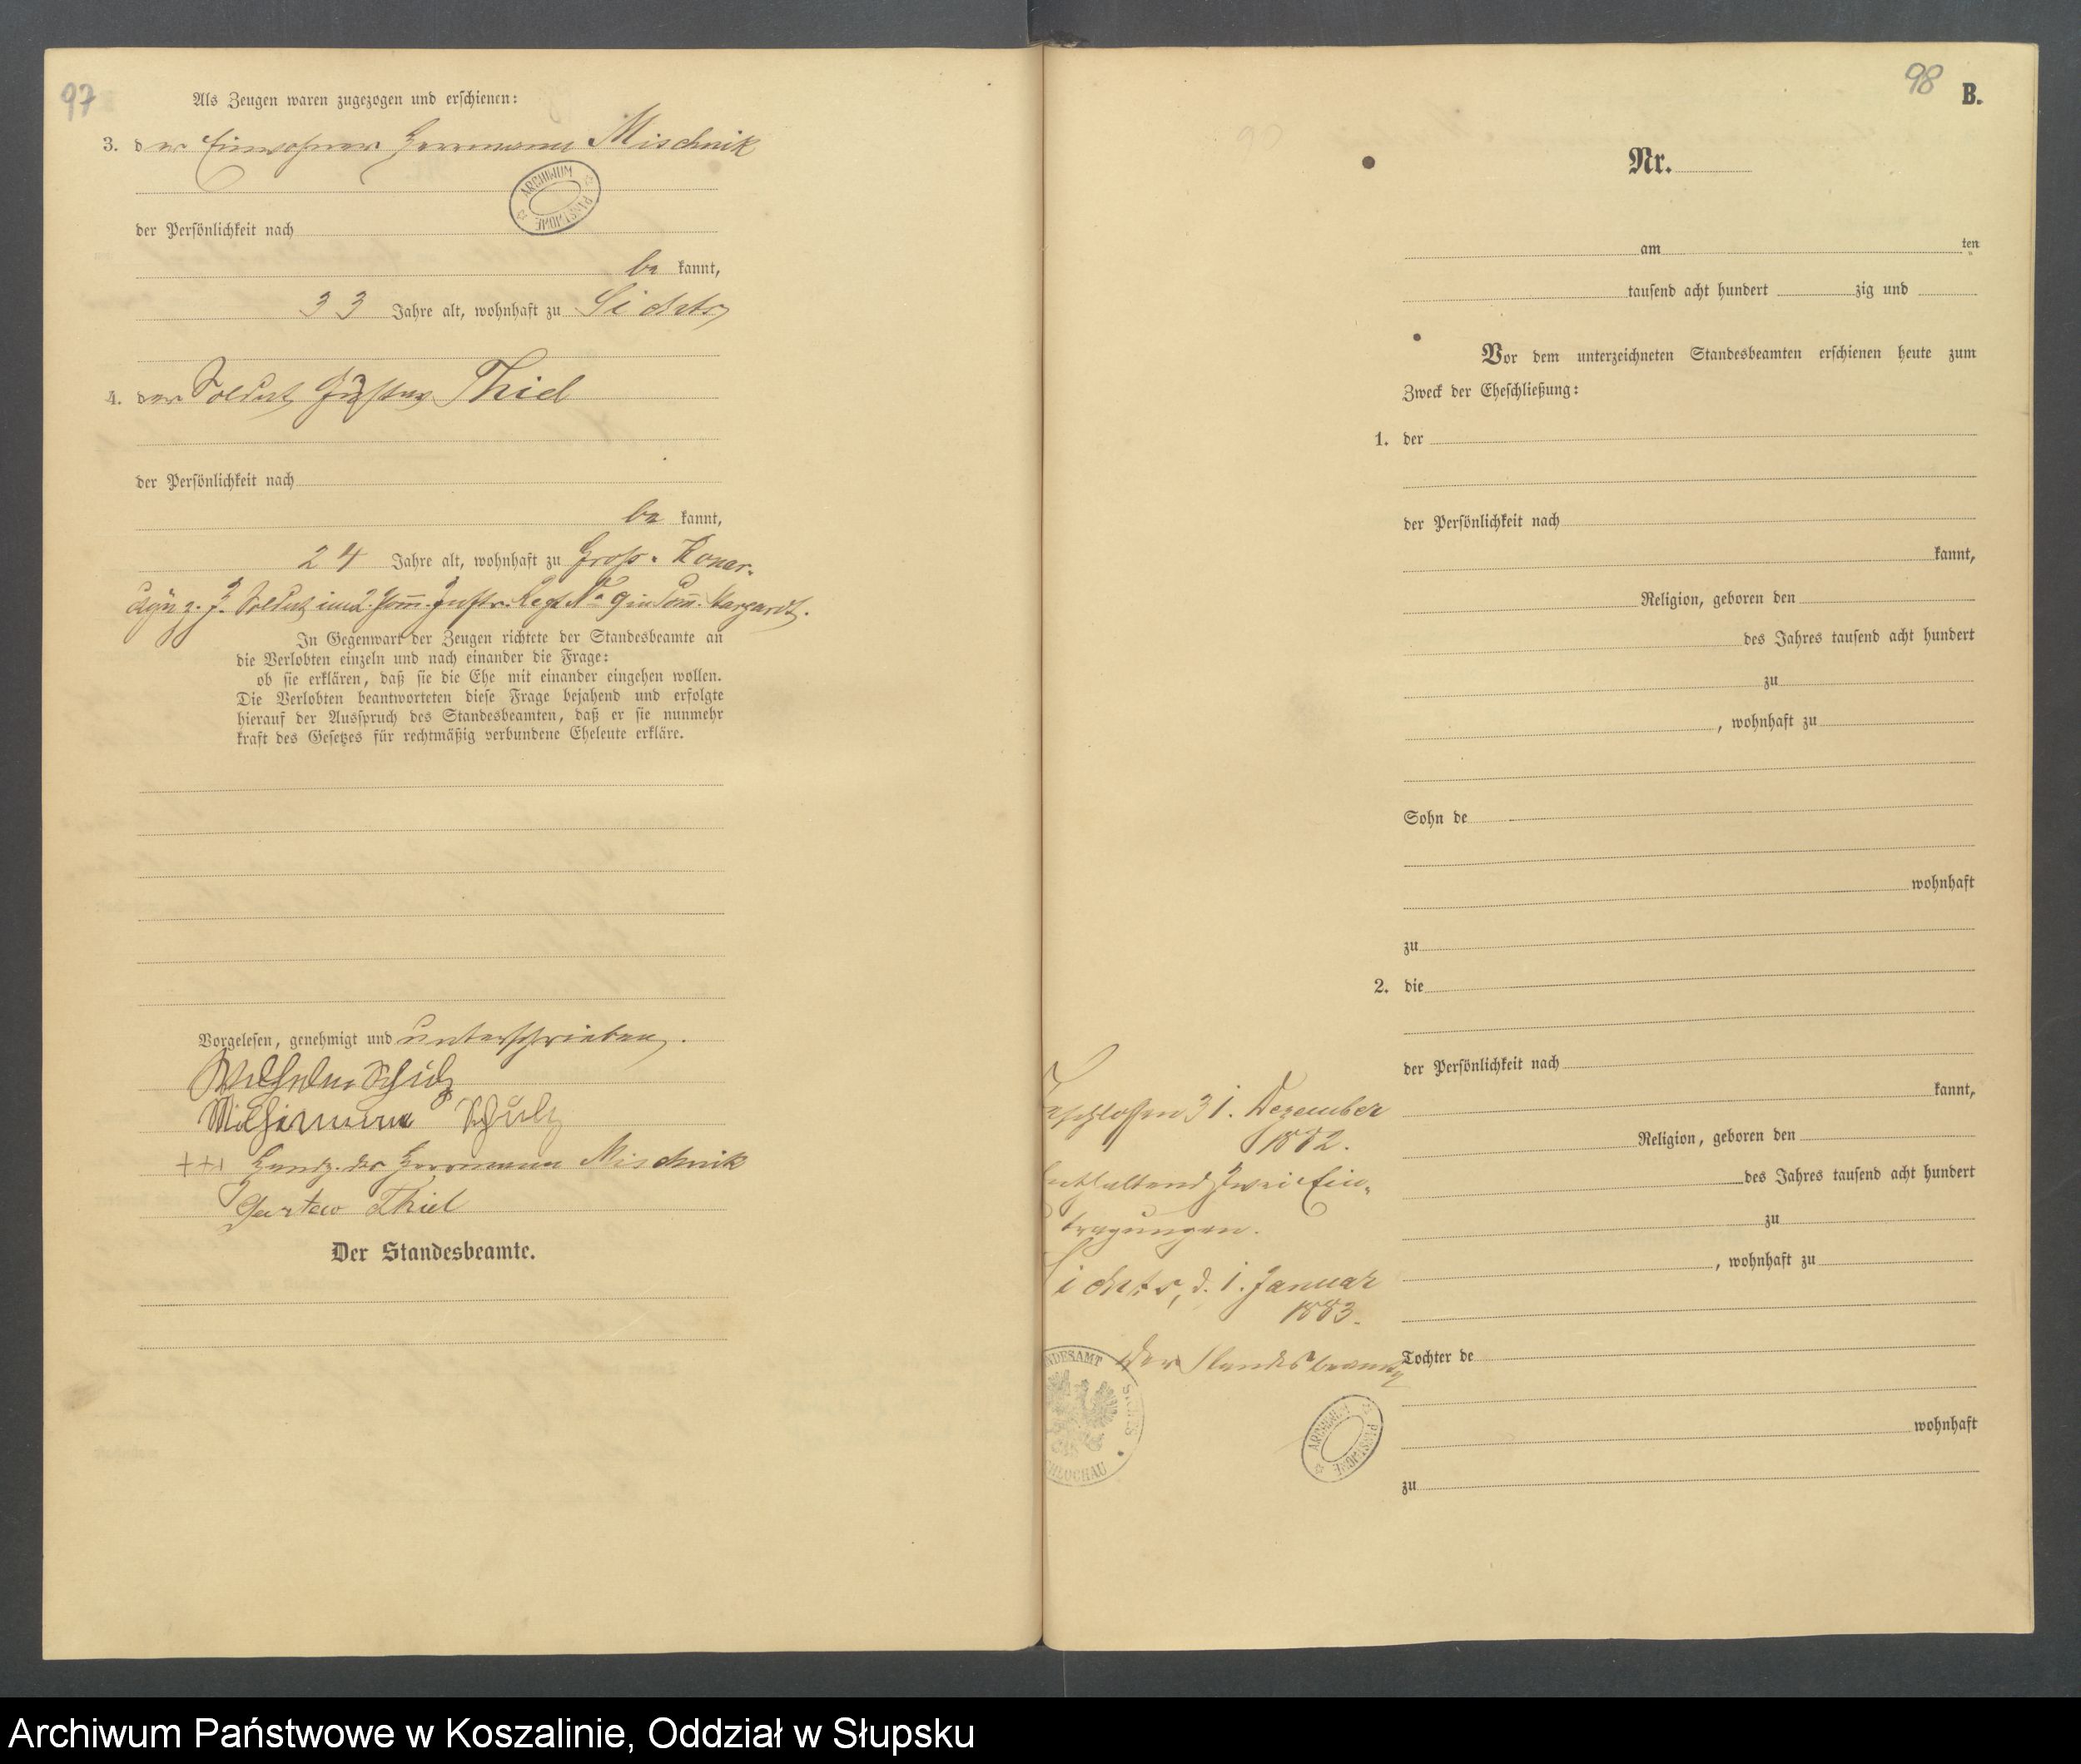 97
Als Zeugen waren zugezogen und erschienen:
3. der Einwohner Herrmann Mischnik
ARCHIWUM PAŃSTWOWE
der Persönlichkeit nach
be kannt,
33 Jahre alt, wohnhaft zu Sichts
4. der Soldat Gustav Thiel
der Persönlichkeit nach
be kannt,
24 Jahre alt, wohnhaft zu Gross-Konar-
czyn z. Z. Soldat im 2. Pom. Regt No 9 in Stargardt.
In Gegenwart der Zeugen richtete der Standesbeamte an
die Verlobten einzeln und nach einander die Frage:
ob sie erklären, daß sie die Ehe mit einander eingehen wollen.
Die Verlobten beantworteten diese Frage bejahend und erfolgte
hierauf der Ausspruch des Standesbeamten, daß er sie nunmehr
kraft des Gesetzes für rechtmäßig verbundene Eheleute erkläre.
Vorgelesen, genehmigt und unterschrieben.
Wilhelm Schulz
Wilhelmine Schulz
+++ Handz. des Herrmann Mischnik
Gustav Thiel
Der Standesbeamte.
98
B.
Nr.
am ten
tausend acht hundert zig und
Vor dem unterzeichneten Standesbeamten erschienen heute zum
Zweck der Eheschließung:
1. der
der Persönlichkeit nach
kannt,
Religion, geboren den
des Jahres tausend acht hundert
zu
, wohnhaft zu
Sohn de
wohnhaft
zu
2. die
der Persönlichkeit nach
kannt,
Religion, geboren den
des Jahres tausend acht hundert
zu
, wohnhaft zu
Tochter de
wohnhaft
zu
31. Dezember
1882.
zwei Ein-
tragungen.
d. 1. Januar
1883.
Der Standesbeamte
ARCHIWUM PAŃSTWOWE
Archiwum Państwowe w Koszalinie, Oddział w Słupsku